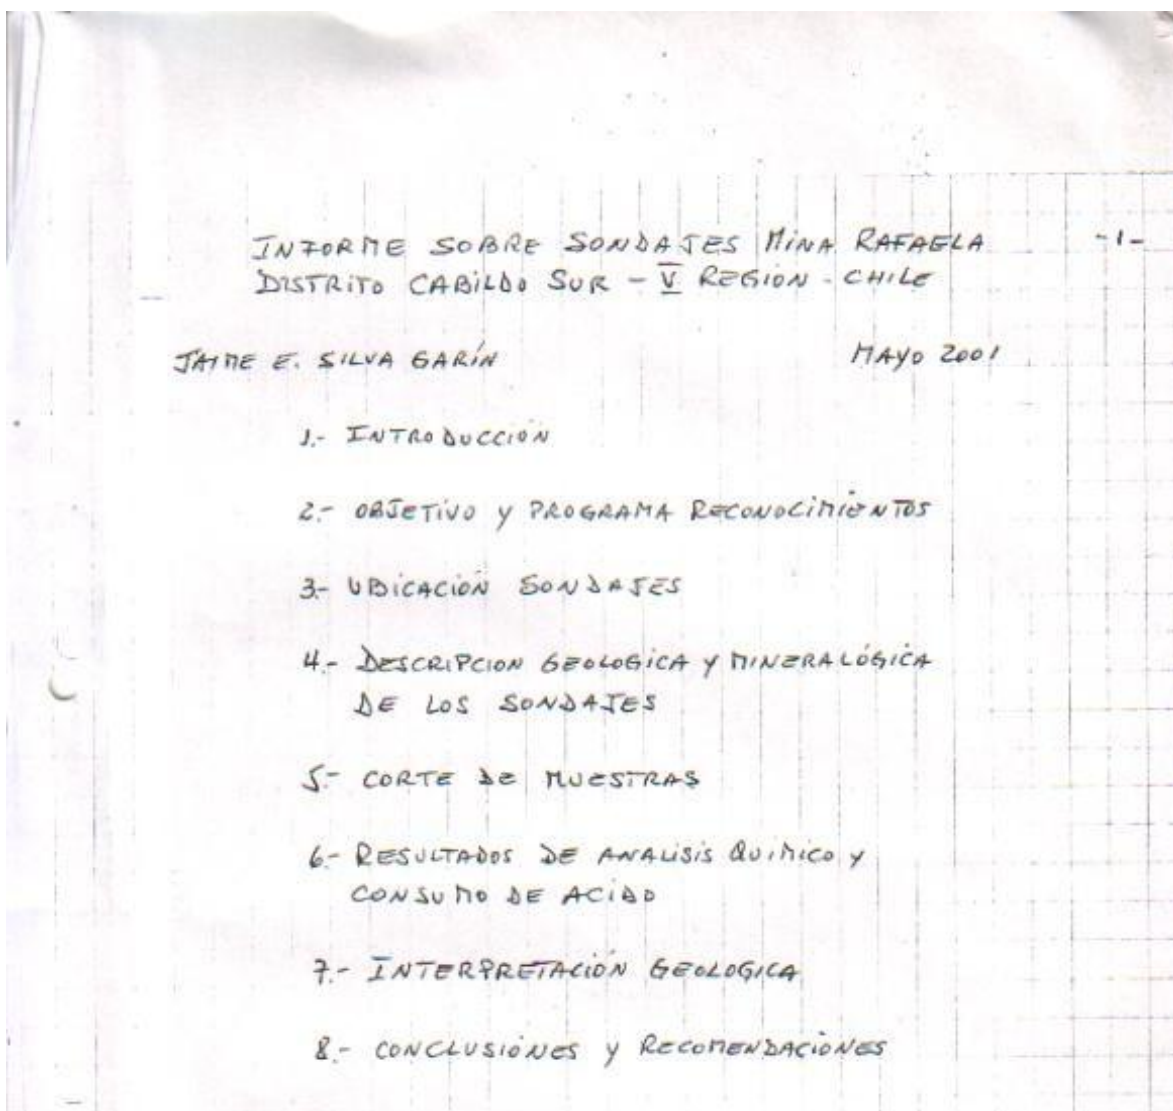 INFORME SOBRE SONDAJES MINA RAFAELA -1-
DISTRITO CABILDO SUR - V REGION - CHILE
JAIME E. SILVA GARÍN MAYO 2001
1.- INTRODUCCIÓN
2.- OBJETIVO Y PROGRAMA RECONOCIMIENTOS
3.- UBICACIÓN SONDAJES
4.- DESCRIPCION GEOLOGICA Y MINERALÓGICA
DE LOS SONDAJES
5.- CORTE DE MUESTRAS
6.- RESULTADOS DE ANALISIS QUIMICO Y
CONSUMO DE ACIDO
7.- INTERPRETACIÓN GEOLOGICA
8.- CONCLUSIONES Y RECOMENDACIONES